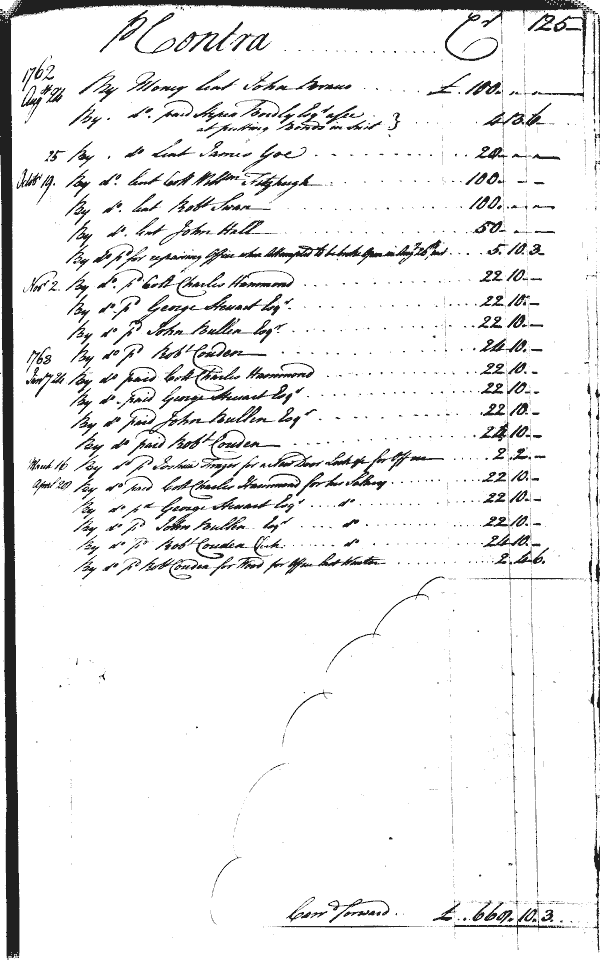 P Contra Cr 125
1762
Augt 24 By Money lent John Evans £ 100 " "
By do. paid Bordly Esqr
at putting Bonds in Suit } 4 13 6
25 By do Lent James Goe 20 " "
Octobr 19. By do. lent Coll Willm Fitzhugh 100 " "
By do. lent Robt Swan 100 " "
By do. lent John Hall 50 " "
By do pd for repairing Office when Attempted to be broke Open in Augt 5. 10. 3
Novr 2. By do. pd Coll Charles Hammond 22 10. -
By do pd George Steuart Esqr. 22 10. -
By do pd John Bullen Esqr 22 10. -
By do pd Robt Couden 24 10. -
1763
Janry 24 By do paid Coll Charles Hammond 22 10. -
By do. paid George Steuart Esqr 22 10. -
By do paid John Bullen Esqr 22 10. -
By do paid Robt Couden 24 10. -
March 16 By do pd Joshua Frazer for a New Door Lock &c for Office 2. 2. -
April 20 By do paid Coll Charles Hammond for his Salary 22 10. -
By do pd George Steuart Esqr do 22 10. -
By do pd John Bullen Esqr do 22 10. -
By do pd Robt Couden Clk. do 24 10. -
By do pd Robt Couden for Wood for Office last Winter 2. 4. 6.
Carrd forward £ 660. 10. 3.